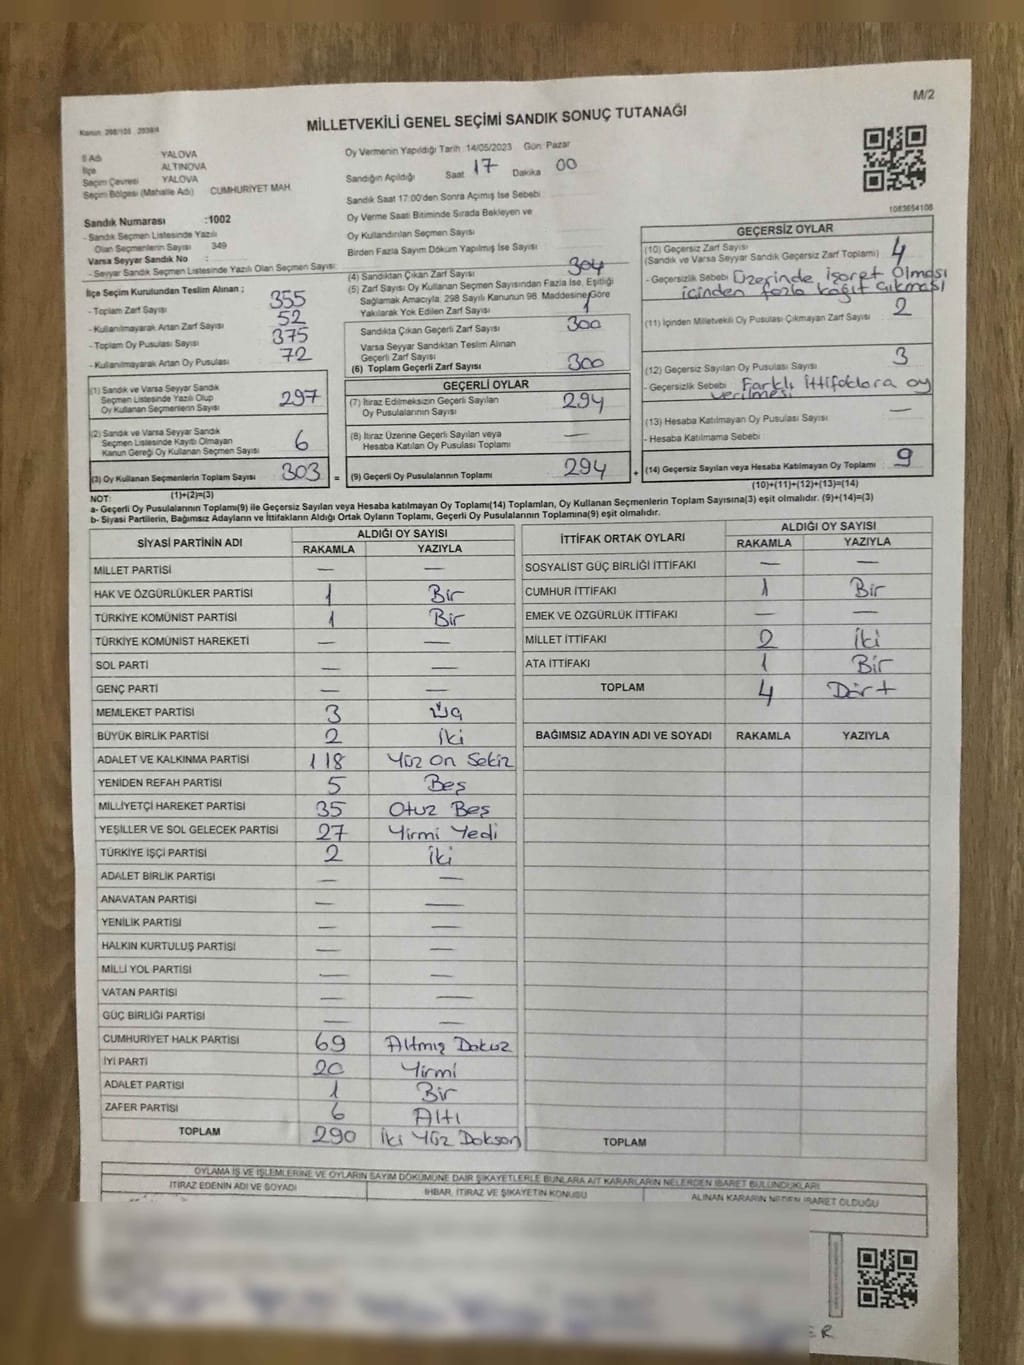 M/2
Kanun 298/105 2839/4
MİLLETVEKİLİ GENEL SEÇİMİ SANDIK SONUÇ TUTANAĞI
İl Adı YALOVA
İlçe ALTINOVA
Seçim Çevresi YALOVA
Seçim Bölgesi (Mahalle Adı) CUMHURİYET MAH.
Sandık Numarası :1002
- Sandık Seçmen Listesinde Yazılı
Olan Seçmenlerin Sayısı 349
Varsa Seyyar Sandık No :
- Seyyar Sandık Seçmen Listesinde Yazılı Olan Seçmen Sayısı:
Oy Vermenin Yapıldığı Tarih :14/05/2023 Gün: Pazar
Sandığın Açıldığı Saat 17 Dakika 00
Sandık Saat 17:00'den Sonra Açımış İse Sebebi
Oy Verme Saati Bitiminde Sırada Bekleyen ve
Oy Kullandırılan Seçmen Sayısı
Birden Fazla Sayım Döküm Yapılmış İse Sayısı
1083654108
İlçe Seçim Kurulundan Teslim Alınan ;
- Toplam Zarf Sayısı : 355
- Kullanılmayarak Artan Zarf Sayısı : 52
- Toplam Oy Pusulası Sayısı : 375
- Kullanılmayarak Artan Oy Pusulası : 72
(1) Sandık ve Varsa Seyyar Sandık
Seçmen Listesinde Yazılı Olup
Oy Kullanan Seçmenlerin Sayısı 297
(2) Sandık ve Varsa Seyyar Sandık
Seçmen Listesinde Kayıtlı Olmayan
Kanun Gereği Oy Kullanan Seçmen Sayısı 6
(3) Oy Kullanan Seçmenlerin Toplam Sayısı 303 =
(1)+(2)=(3)
(4) Sandıktan Çıkan Zarf Sayısı 304
(5) Zarf Sayısı Oy Kullanan Seçmen Sayısından Fazla İse, Eşitliği
Sağlamak Amacıyla, 298 Sayılı Kanunun 98. Maddesine Göre
Yakılarak Yok Edilen Zarf Sayısı 1
Sandıkta Çıkan Geçerli Zarf Sayısı 300
Varsa Seyyar Sandıktan Teslim Alınan
Geçerli Zarf Sayısı
(6) Toplam Geçerli Zarf Sayısı 300
GEÇERLİ OYLAR
(7) İtiraz Edilmeksizin Geçerli Sayılan
Oy Pusulalarının Sayısı 294
(8) İtiraz Üzerine Geçerli Sayılan veya
Hesaba Katılan Oy Pusulası Toplamı —
(9) Geçerli Oy Pusulalarının Toplamı 294 +
GEÇERSİZ OYLAR
(10) Geçersiz Zarf Sayısı
(Sandık ve Varsa Seyyar Sandık Geçersiz Zarf Toplamı) 4
- Geçersizlik Sebebi Üzerinde işaret Olması
içinden fazla kağıt çıkması
(11) İçinden Milletvekili Oy Pusulası Çıkmayan Zarf Sayısı 2
(12) Geçersiz Sayılan Oy Pusulası Sayısı 3
- Geçersizlik Sebebi Farklı İttifaklara oy
verilmesi
(13) Hesaba Katılmayan Oy Pusulası Sayısı —
- Hesaba Katılmama Sebebi
(14) Geçersiz Sayılan veya Hesaba Katılmayan Oy Toplamı 9
(10)+(11)+(12)+(13)=(14)
NOT:
a- Geçerli Oy Pusulaları Toplamı(9) ile Geçersiz Sayılan veya Hesaba katılmayan Oy Toplamı(14) Toplamları, Oy Kullanan Seçmenlerin Toplam Sayısına(3) eşit olmalıdır. (9)+(14)=(3)
b- Siyasi Partilerin, Bağımsız Adayların ve İttifakların Aldığı Ortak Oyların Toplamı, Geçerli Oy Pusulalarının Toplamına(9) eşit olmalıdır.
SİYASİ PARTİNİN ADI ALDIĞI OY SAYISI
RAKAMLA YAZIYLA
MİLLET PARTİSİ — —
HAK VE ÖZGÜRLÜKLER PARTİSİ 1 Bir
TÜRKİYE KOMÜNİST PARTİSİ 1 Bir
TÜRKİYE KOMÜNİST HAREKETİ — —
SOL PARTİ — —
GENÇ PARTİ — —
MEMLEKET PARTİSİ 3 Üç
BÜYÜK BİRLİK PARTİSİ 2 İki
ADALET VE KALKINMA PARTİSİ 118 Yüz On Sekiz
YENİDEN REFAH PARTİSİ 5 Beş
MİLLİYETÇİ HAREKET PARTİSİ 35 Otuz Beş
YEŞİLLER VE SOL GELECEK PARTİSİ 27 Yirmi Yedi
TÜRKİYE İŞÇİ PARTİSİ 2 İki
ADALET BİRLİK PARTİSİ — —
ANAVATAN PARTİSİ — —
YENİLİK PARTİSİ — —
HALKIN KURTULUŞ PARTİSİ — —
MİLLİ YOL PARTİSİ — —
VATAN PARTİSİ — —
GÜÇ BİRLİĞİ PARTİSİ — —
CUMHURİYET HALK PARTİSİ 69 Altmış Dokuz
İYİ PARTİ 20 Yirmi
ADALET PARTİSİ 1 Bir
ZAFER PARTİSİ 6 Altı
TOPLAM 290 İki Yüz Doksan
İTTİFAK ORTAK OYLARI ALDIĞI OY SAYISI
RAKAMLA YAZIYLA
SOSYALİST GÜÇ BİRLİĞİ İTTİFAKI — —
CUMHUR İTTİFAKI 1 Bir
EMEK VE ÖZGÜRLÜK İTTİFAKI — —
MİLLET İTTİFAKI 2 İki
ATA İTTİFAKI 1 Bir
TOPLAM 4 Dört
BAĞIMSIZ ADAYIN ADI VE SOYADI RAKAMLA YAZIYLA
TOPLAM
OYLAMA İŞ VE İŞLEMLERİNE VE OYLARIN SAYIM DÖKÜMÜNE DAİR ŞİKAYETLERLE BUNLARA AİT KARARLARIN NELERDEN İBARET BULUNDUKLARI
İTİRAZ EDENİN ADI VE SOYADI İHBAR, İTİRAZ VE ŞİKAYETİN KONUSU ALINAN KARARIN NEDEN İBARET OLDUĞU